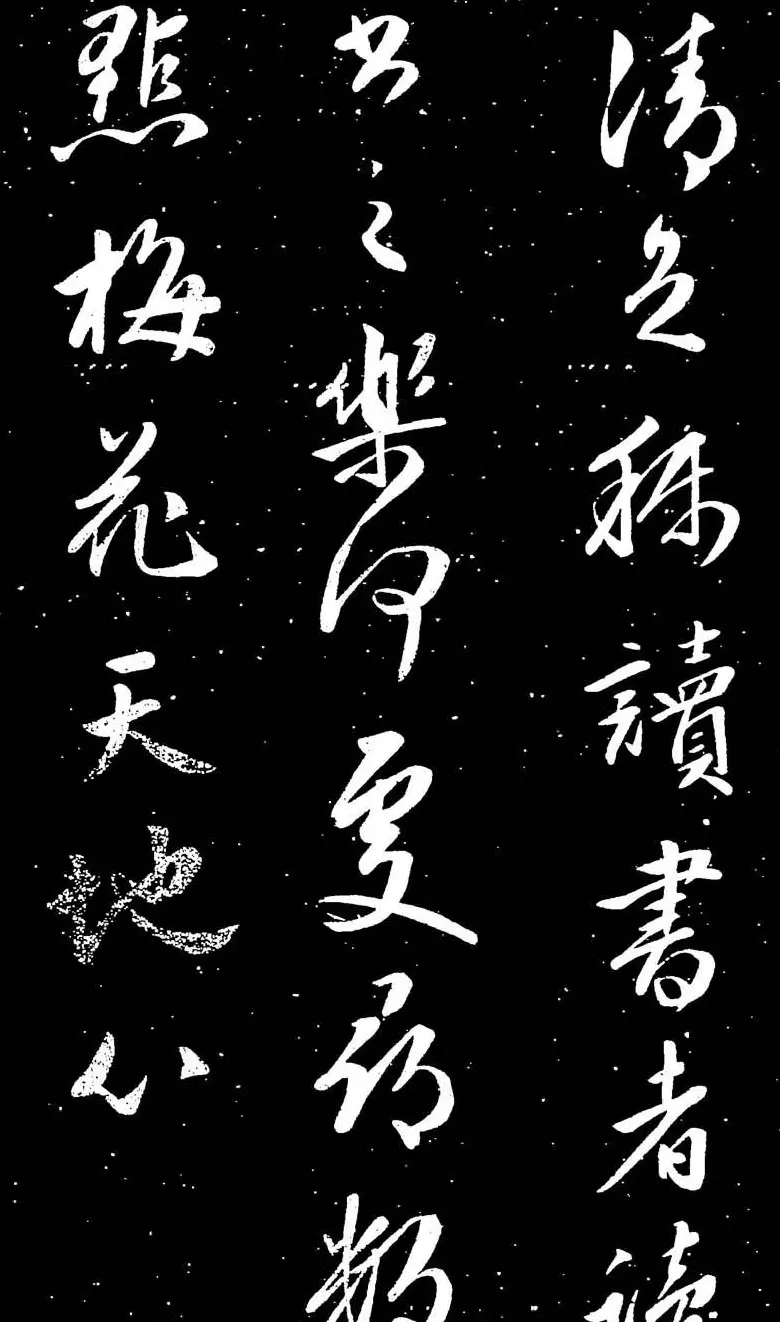 清足称讀書者讀
书之樂何處尋數
點梅花天地心